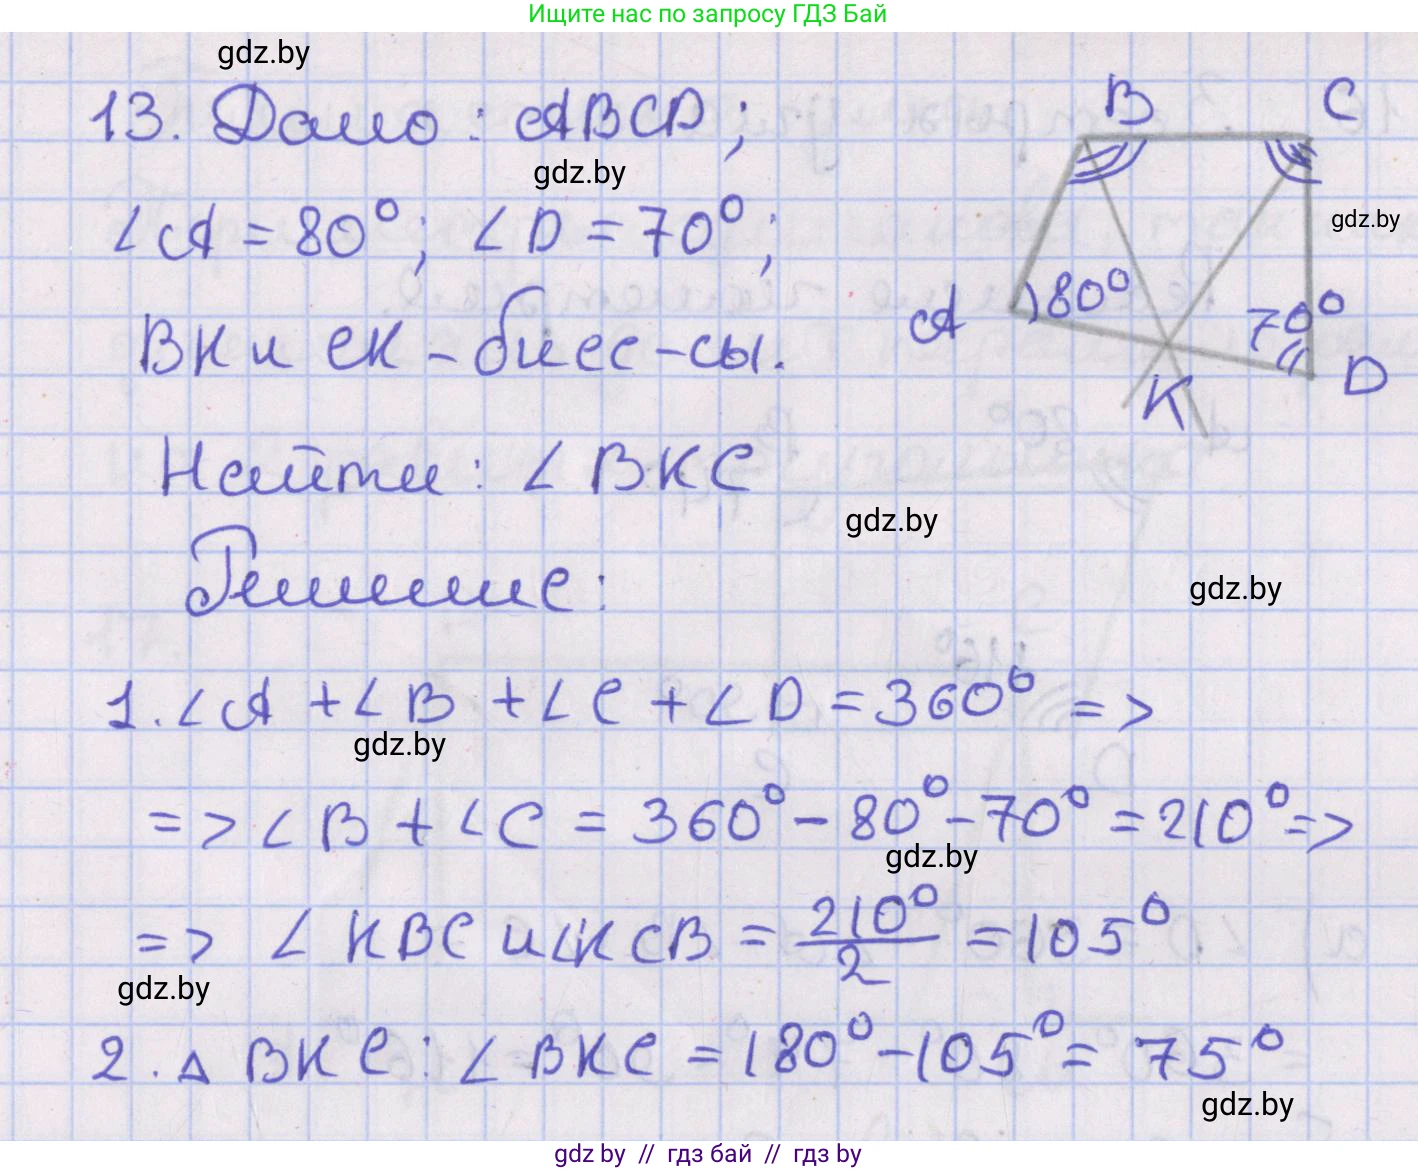 Ищите нас по запросу ГДЗ Бай
gdz.by
13. Дано: ABCD;
gdz.by
∠A = 80°; ∠D = 70°;
BK и CK - бисс-сы.
B C
gdz.by
A 80° 70° D
K
Найти: ∠BKC
gdz.by
Решение:
gdz.by
1. ∠A + ∠B + ∠C + ∠D = 360° =>
gdz.by
=> ∠B + ∠C = 360° - 80° - 70° = 210° =>
gdz.by
=> ∠KBC и ∠KCB = 210°/2 = 105°
gdz.by
2. △BKC: ∠BKC = 180° - 105° = 75°
gdz.by
gdz by // гдз бай // гдз by